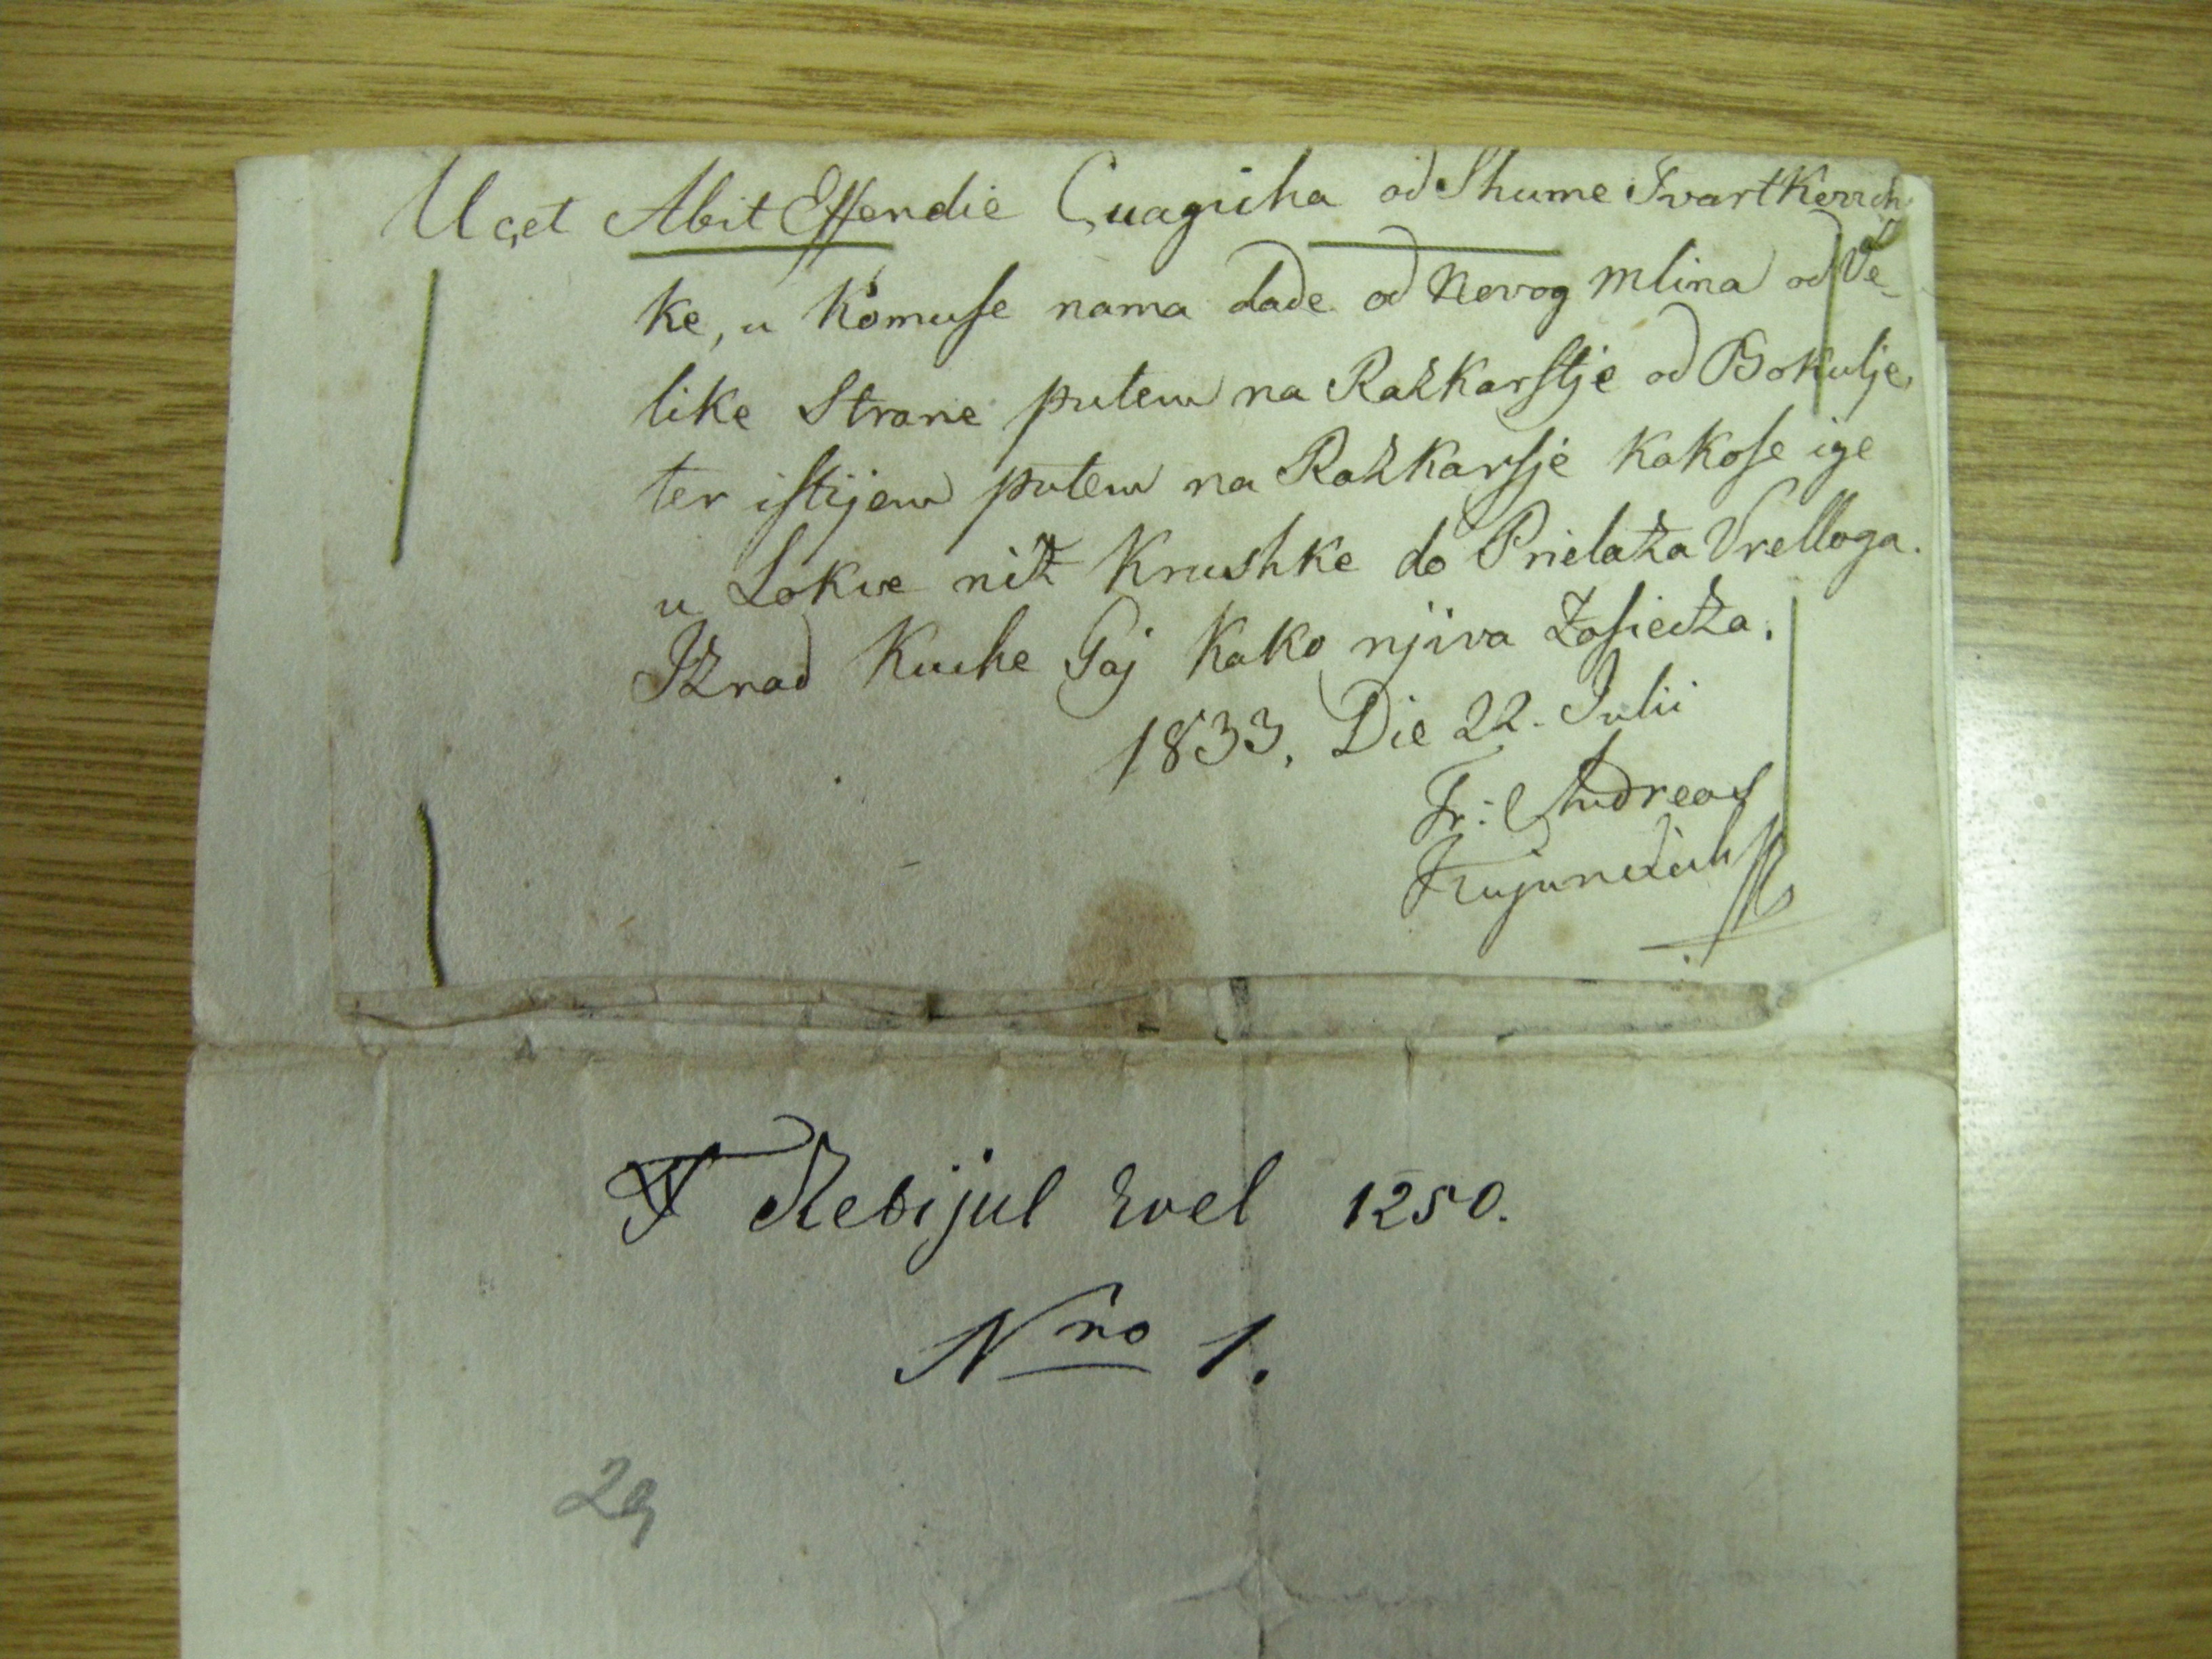 Uçet Abit Effendie Çuagicha od Shume Tvartkerich
ke, u komuse nama dade od Novog Mlina od Ve-
like Strane putem na Razkarstje od Bokulje,
ter istijem putem na Razkarsje kakose ige
u Lokve niz Krushke do Prielaza Vrelloga.
Iznad Kuche Gaj kako njiva Zasiedza.
1833, Die 22. Julii
Fr: Andreas
Kujundzich
F Rebijul Evel 1250.
Nro 1.
29